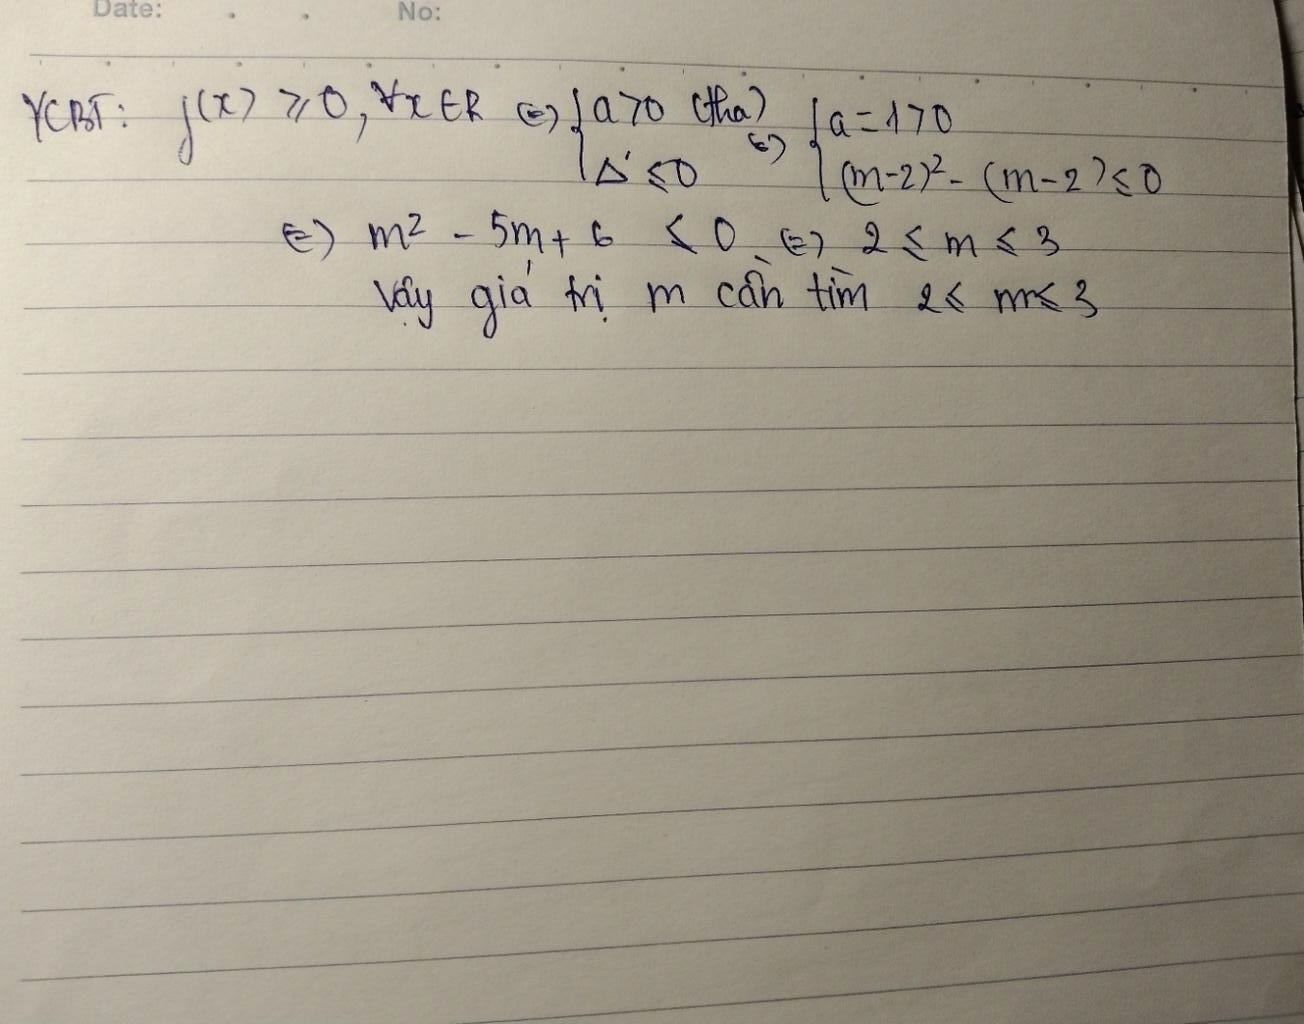 Date: . . No:
YCBT: f(x) ≥ 0, ∀x ∈ R ⇔ { a > 0 (tha) ⇔ { a = 1 > 0
Δ' ≤ 0 (m-2)² - (m-2) ≤ 0
⇔ m² - 5m + 6 ≤ 0 ⇔ 2 ≤ m ≤ 3
Vậy giá trị m cần tìm 2 ≤ m ≤ 3